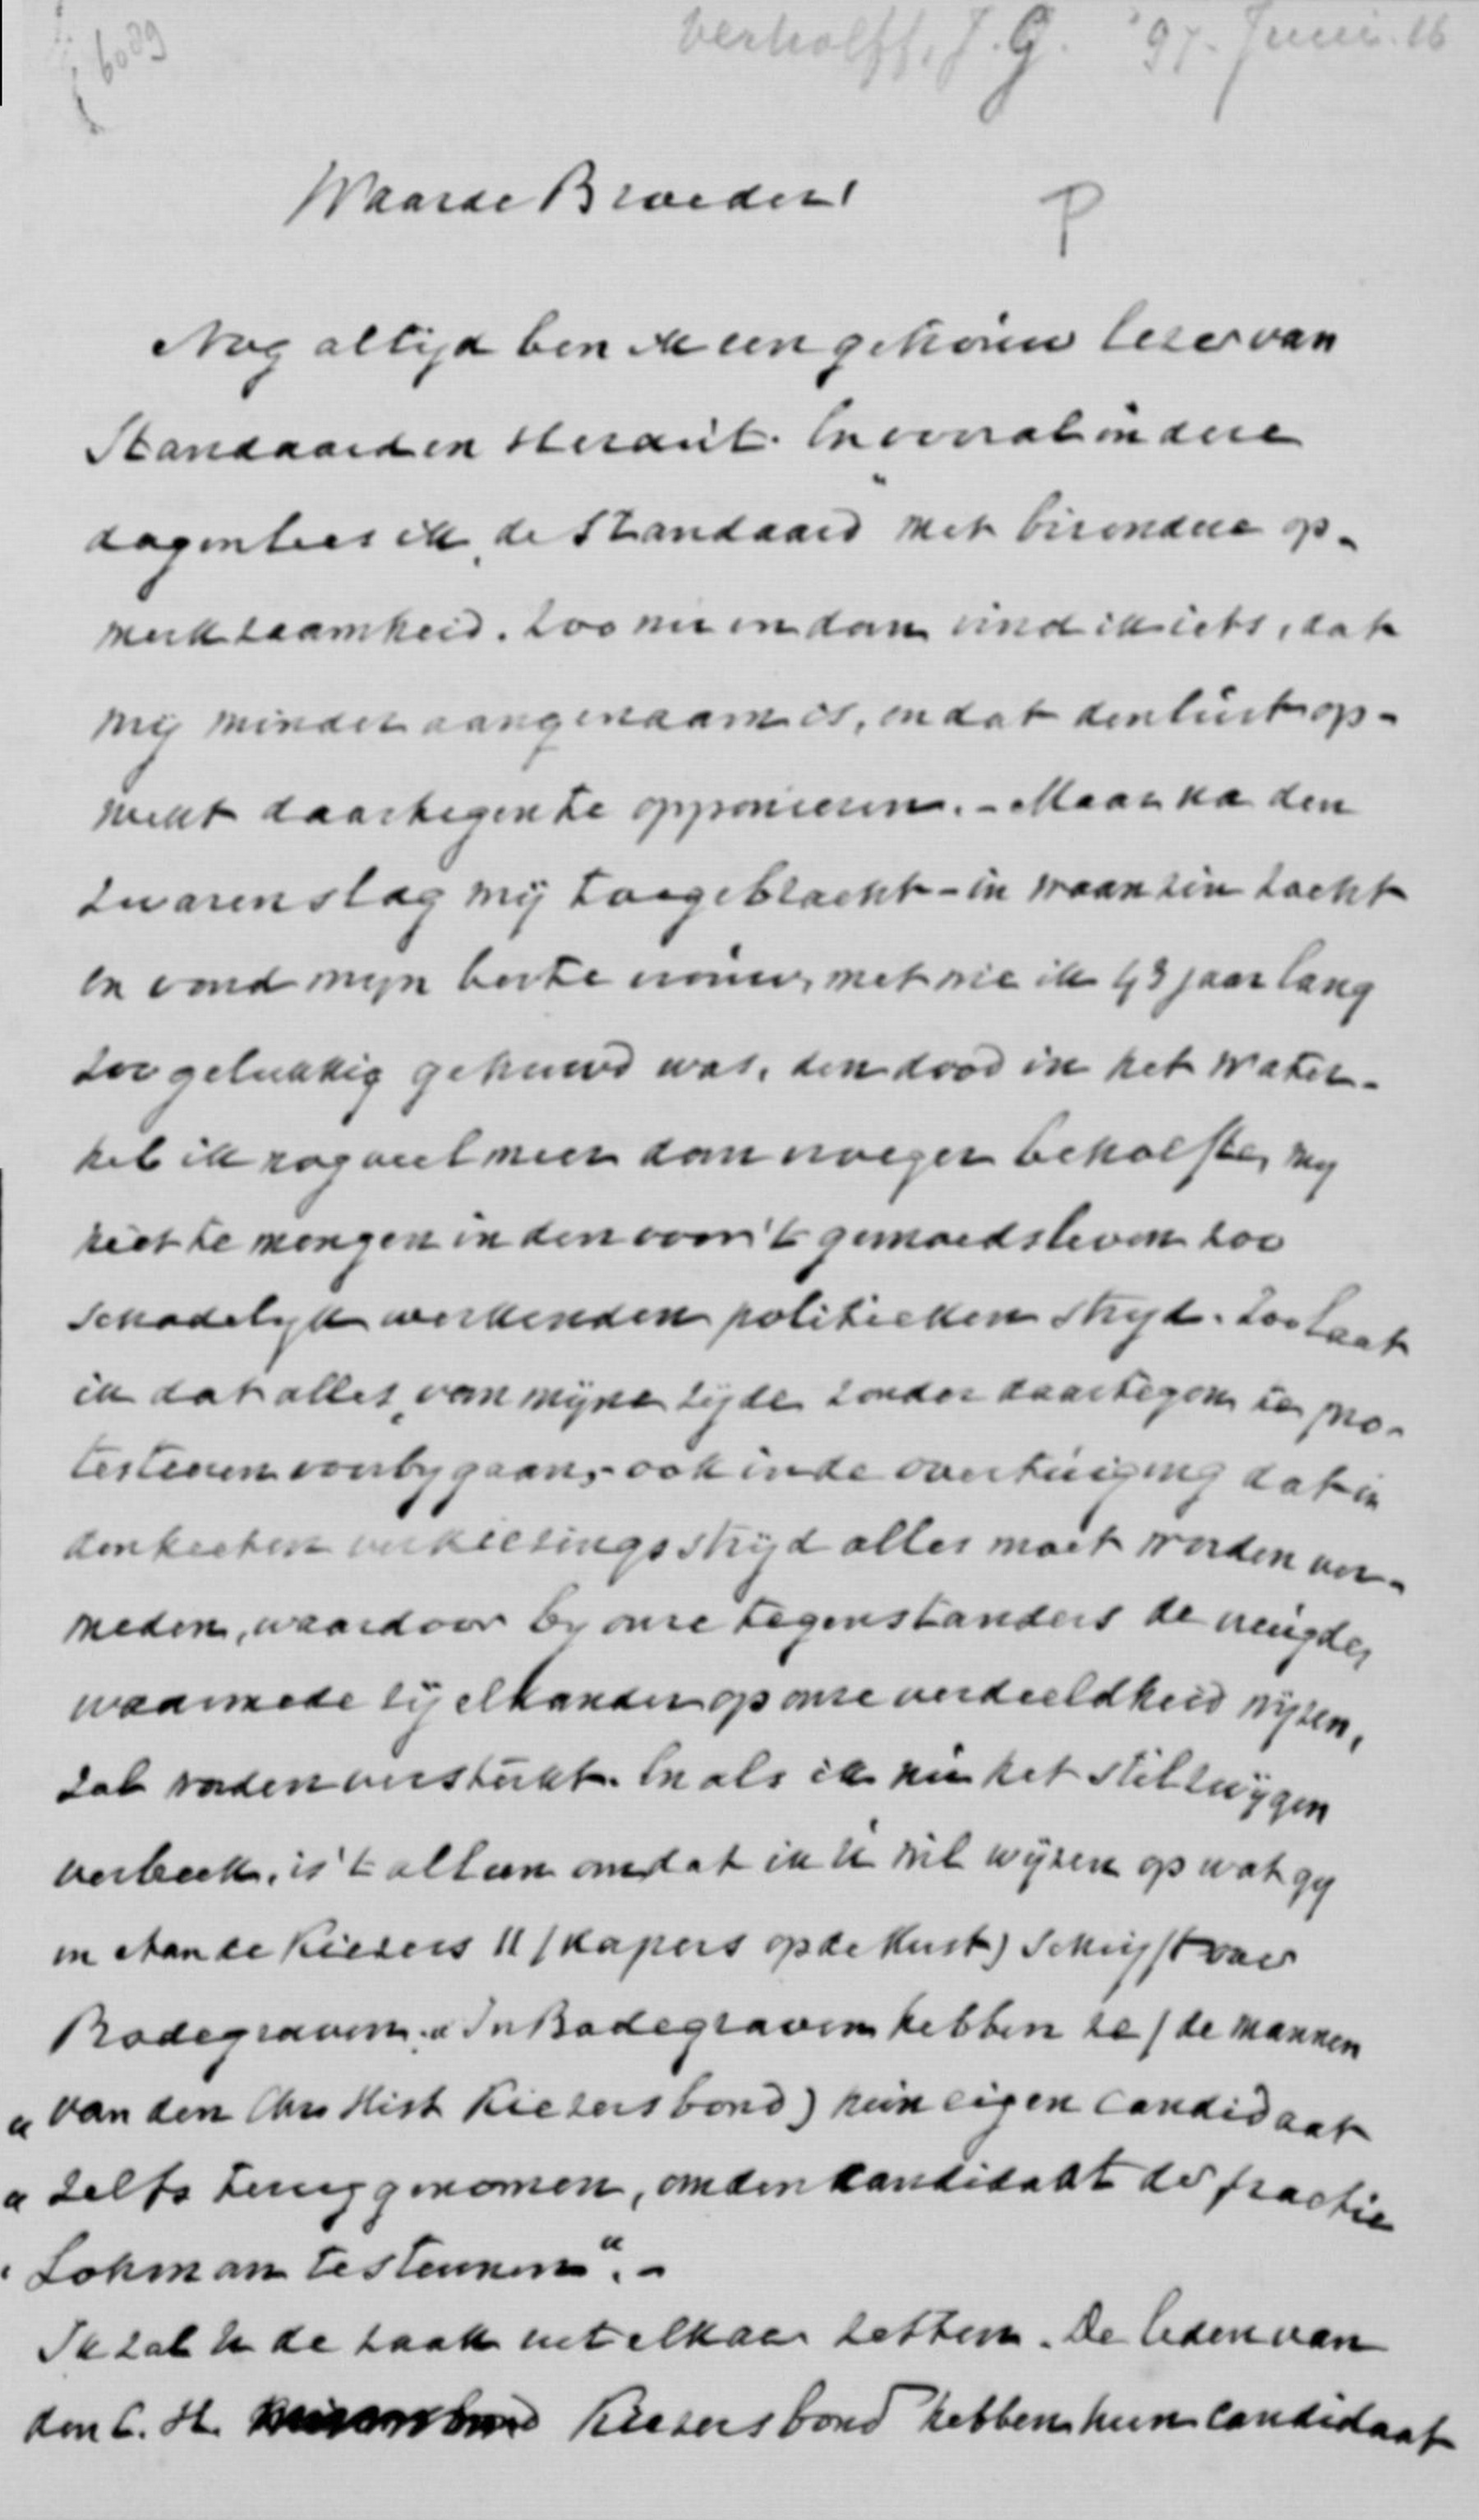 6089
Verhoeff, J. G. '97 Juni 16
Waarde Broeder!
P
Nog altijd ben ik een getrouw lezer van
Standaard en Heraut. En vooral in deze
dagen lees ik „de Standaard" met bizondere op-
merkzaamheid. Zoo nu en dan vind ik iets, dat
mij minder aangenaam is, en dat den lust op-
wekt daartegen te opponieren. - Maar na den
zwaren slag mij toegebracht - in waanzin zocht
en vond mijn beste vrouw, met wie ik 43 jaar lang
zoo gelukkig gehuwd was, den dood in het water -
heb ik nog veel meer dan vroeger behoefte, my
niet te mengen in den voor 't gemoedsleven zoo
schadelijk werkenden politieken strijd. Zoo laat
ik dat alles, van mijne zijde zonder daartegen te pro-
testeeren voorbygaan, - ook in de overtuiging dat in
den heeten verkiezingsstrijd alles moet worden ver-
meden, waardoor by onze tegenstanders de vreugde,
waarmede zij elkander op onze verdeeldheid wijzen,
zal worden versterkt. En als ik nu het stilzwijgen
verbreek, is 't alleen omdat ik U wil wijzen op wat gy
in Aan de Kiezers II (Kapers op de Kust) schrijft over
Bodegraven. „In Bodegraven hebben ze (de mannen
„van den Chr Hist Kiezersbond) hun eigen candidaat
„zelfs teruggenomen, om den candidaat der fractie
„Lohman te steunen". -
Ik zal U de zaak uit elkaar zetten. De leden van
den C. H. Kiezersbond hebben hun candidaat